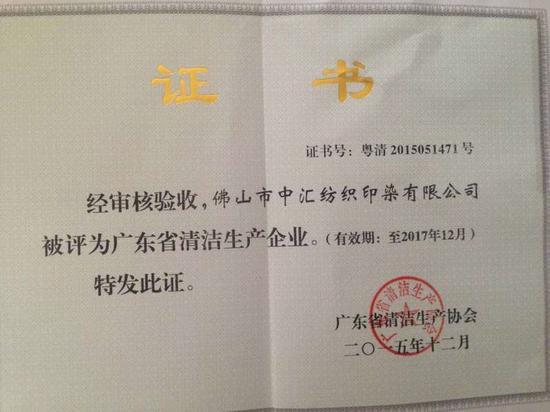 证书
证书号：粤清2015051471号
经审核验收，佛山市中汇纺织印染有限公司
被评为广东省清洁生产企业。（有效期：至2017年12月）
特发此证。
广东省清洁生产协会
广东省清洁生产协会
二〇一五年十二月